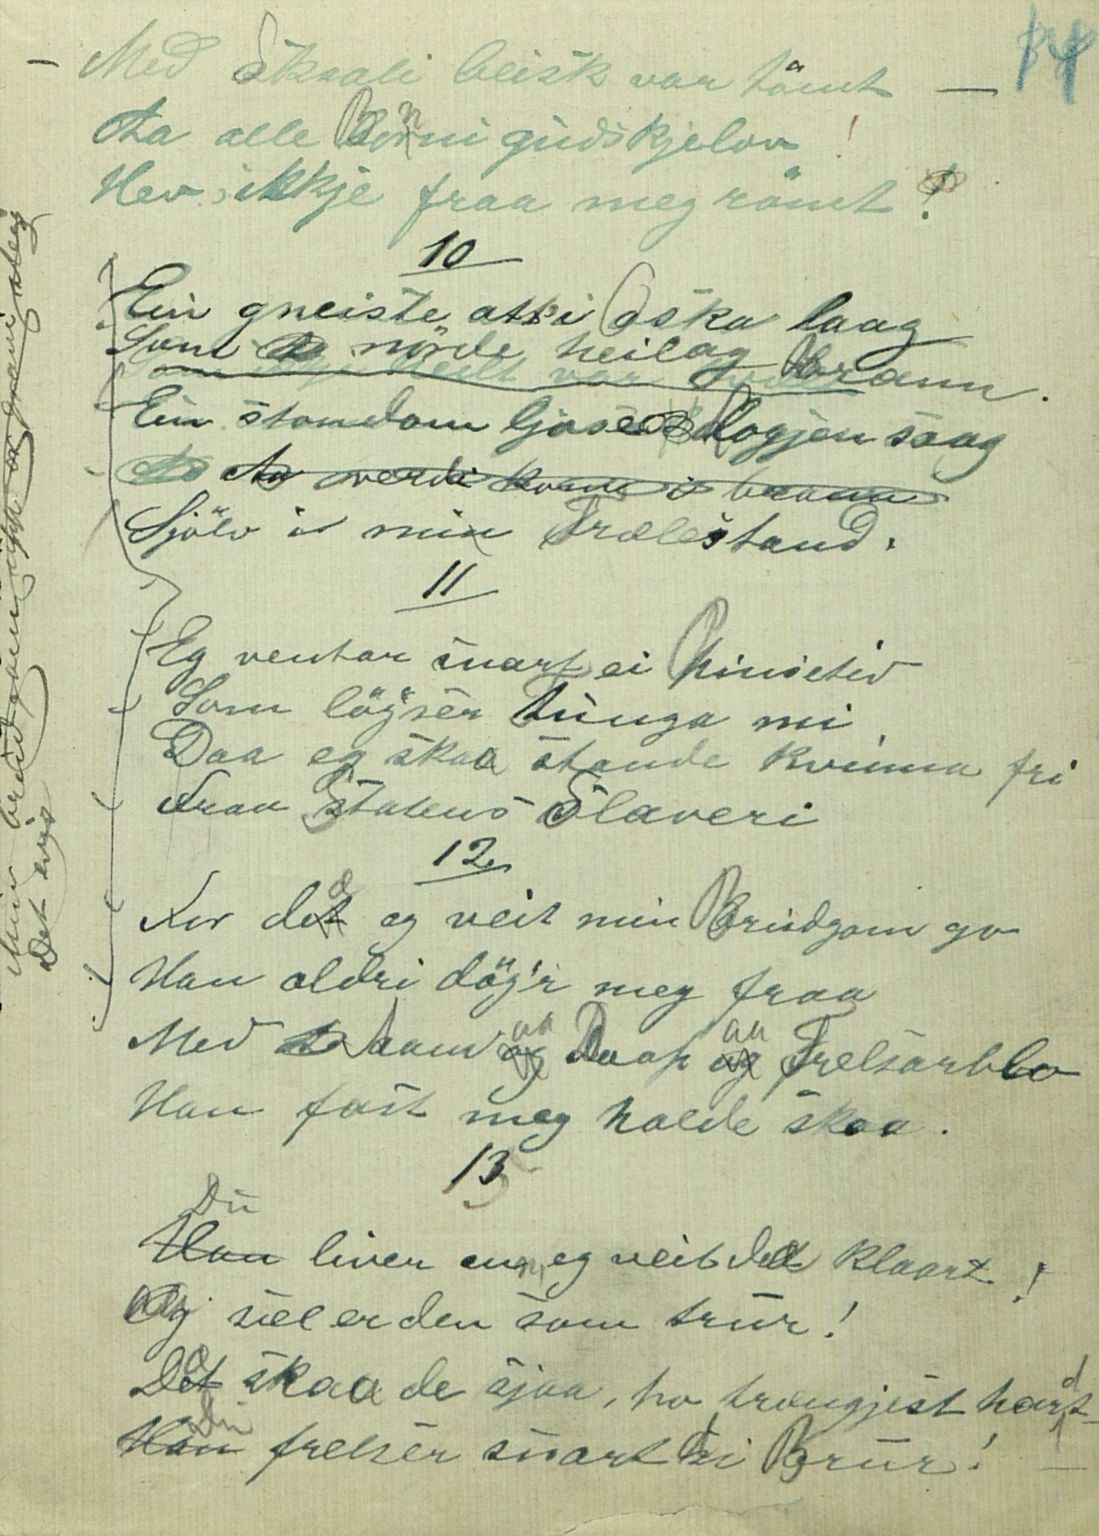 Med Skaali beisk var tömt —
Aa alle Borni gudskjelov!
Hev ikkje fraa meg römt!
10
Ein gneiste att i Oska laag
Som nörde heilag brann.
Ein stomdom ljose Logjen saag
Aa verdi kom i brann
Sjölv i min Trælestand.
11
Eg ventar snart ei Pinsetid
Som löyser Tunga mi
Daa eg skaa stande kvinna fri
Fraa Statens Slaveri
12
For de eg veit min Brudgom go
Han aldri döy'r meg fraa
Med Aand aa Daap aa Frelsarblo
Han fast meg halde skaa.
13
Du
Han liver en, eg veit det klaart!
Og sæl er den som trur!
De skaa de sjaa, ho trængjest hard
Du
Han frelser snart si Brur!
Det evge